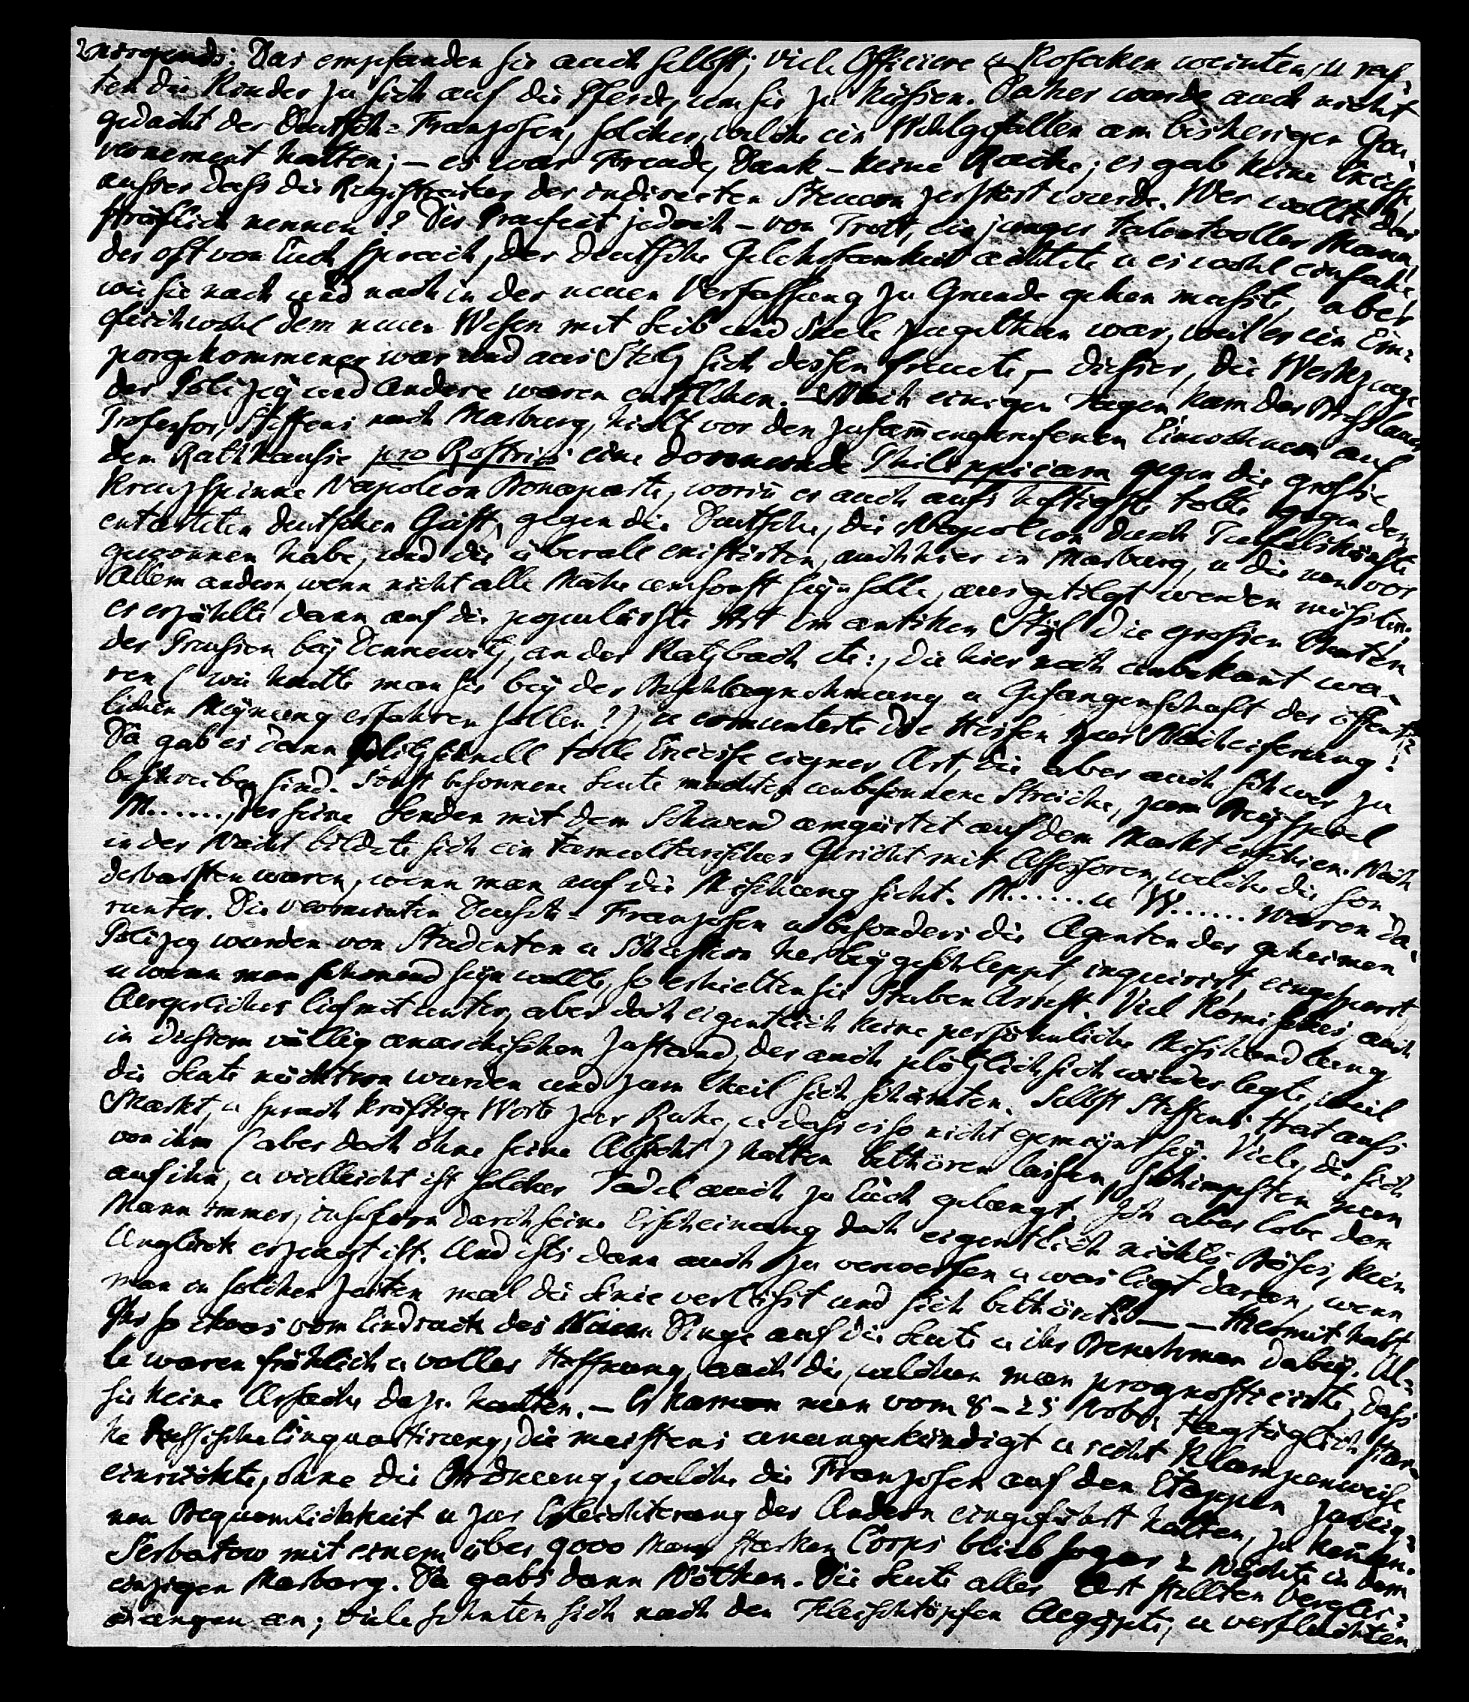 2 nirgends: Das empfanden sie auch selbst; viele Officiere u Kosacken weinten, u reich-
ten die Kinder zu sich auf die Pferde, um sie zu küssen. Daher wurde auch nicht
gedacht der Deutsch-Franzosen, solcher, welche ein Wohlgefallen am bisherigen Gou-
vernement hatten; – es war Freude, Dank – keine Rache; es gab keine Excesse,
ausser dass die Registratur der indirecten Steuern zerstört wurde. Wer wollte das
sträflich nennen? Der Praefect jedoch – von Trott, ein junger talentvoller Mann,
der oft von Euch sprach, der deutsche Gelehrsamkeit achtete u es wohl einsahe,
wie sie nach und nach in der neuen Verfassung zu Grunde gehen mußte, aber
gleichwohl dem neuen Wesen mit Leib und Seele zugethan war, weil er ein Em-
porgekommener war und aus Stolz sich dessen freute, – dieser, die Werkzeuge
der Polizey und andere waren entflohen. – Nach einigen Tagen kam der Breslauer
Professor Steffens nach Marburg, hielt vor den zusammengerufenen Einwohnern auf
dem Rathhause pro Rostris eine donnernde Philippicam gegen die große
Kreuzspinne Napoleon Bonaparte, worin er auch aufs heftigste tobte gegen den
entarteten deutschen Geist, gegen die Deutsche, die Napoleon durch Teufelskünste
gewonnen habe, und die überall existirten, auch hier in Marburg, u die nun vor
Allem andern, wenn nicht alle Mühe umsonst seyn solle, ausgetilgt werden müßten;
er erzählte dann auf die populärste Art im antiken Styl die grossen Thaten
der Preussen bey Dennewitz, an der Katzbach etc:, die hier noch unbekannt wa-
ren (wie hatte man sie bey der Beschlagnehmung u Gefangenschaft der öffent-
lichen Meynung erfahren sollen?) u ermunterte die Hessen zur Nacheiferung!
Da gab es dann blitzschnell tolle Excesse eigner Art, die aber auch schwer zu
beschreiben sind. Sonst besonnene Leute machten unbesonnene Streiche, zum Beyspiel
M......, der seine Lenden mit dem Schwerd umgürtet auf dem Markt erschien. Noch
in der Nacht bildete sich ein tumultarisches Gericht mit Assessoren, welche die son-
derbarsten waren, wenn man auf die Mischung sieht. M...... u W...... waren da-
runter. Die vermeinten Deutsch-Franzosen u besonders die Agenten der geheimen
Polizey wurden von Studenten u Schustern herbeygeschleppt, inquirirt, eingesperrt
u wenn man schonend seyn wollte, so erhielten sie Stuben Arrest. Viel Komisches, auch
Aergerliches lief mit unter, aber doch eigentlich keine persönliche Mishandlung
in diesem völlig anarchischen Zustand, der auch plötzlich sich wieder legte, weil
die Leute nüchtern wurden und zum Theil sich schämten. Selbst Steffens trat aufs
Markt, u sprach kräftige Worte zur Ruhe, u daß es so nicht gemeynt sey. Viele, die sich
von ihm (aber doch ohne seine Absicht) hatten bethören lassen, schimpften nun
auf ihn, u vielleicht ist solcher Tadel auch zu Euch gelangt. Ich aber lobe den
Mann immer, insofern durch seine Erscheinung doch eigentlich nichts Böses, kein
Unglück erzeugt ist. Und ists dann auch zu verwerfen u was liegt daran, wenn
man in solchen Zeiten mal die Linie verläßt und sich bethöret? – – Hiermit habt
Ihr so etwas vom Eindruck des Neuen Dinge auf die Leute u ihr Benehmen dabey. Al-
le waren fröhlich u voller Hoffnung, auch die, welchen man prognosticirte, dass
sie keine Ursache dazu hatten. – Es kamen nun vom 8 – 25 Nobr tagtäglich star-
ke Russische Einquartirung, die meistens unangekündigt u recht klumpenweise
einrückte, ohne die Ordnung, welche die Franzosen auf den Etappen zu eig-
nen Bequemlichkeit u zur Erleichterung der Andern eingeführt hatten, zu kennen.
Serbatow mit einem über 9000 Mann starken Corps blieb sogar 2 Nächte in dem
einzigen Marburg. Da gabs dann Nöthen. Die Leute aller Art stellten Verglei-
chungen an; viele sehnten sich nach den Fleischtöpfen Aegypts, u verfluchten